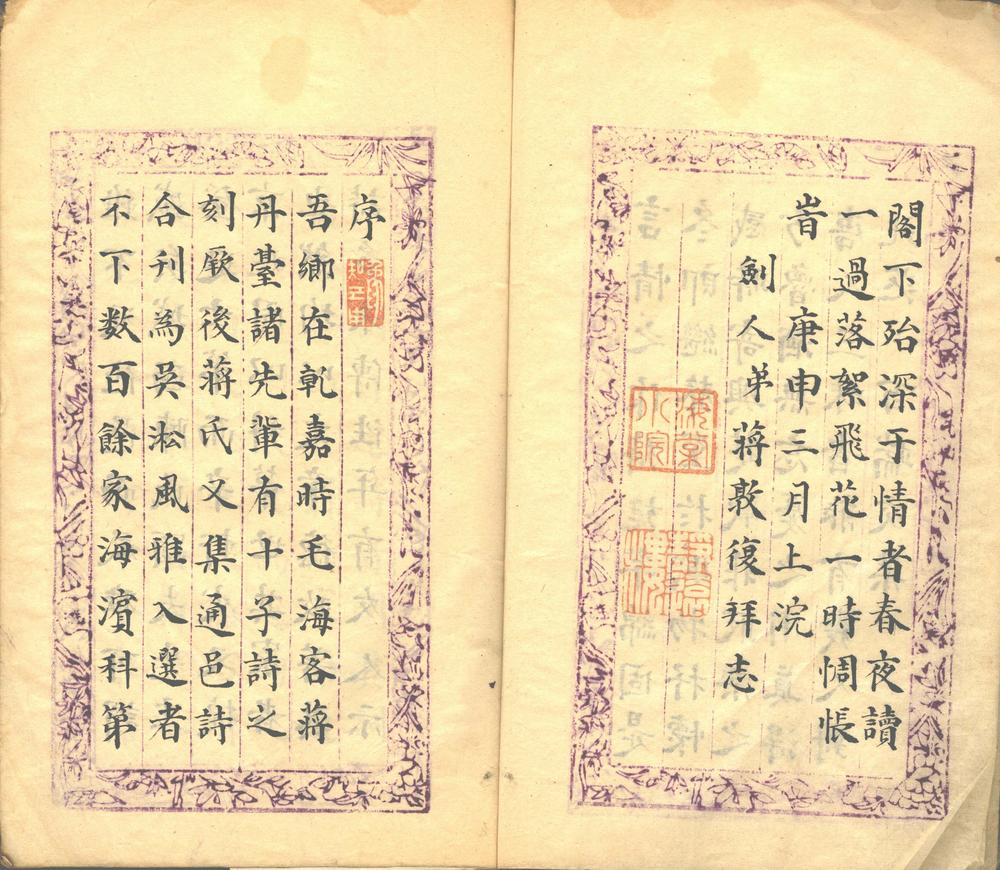 閣下殆深于情者春夜讀
一過落絮飛花一時惆悵
旹庚申三月上浣
劍人弟蔣敦復拜志
海棠
小院
序
吾鄉在乾嘉時毛海客蔣
丹臺諸先輩有十子詩之
刻厥後蔣氏又集通邑詩
合刊為吳淞風雅入選者
不下数百餘家海濱科第